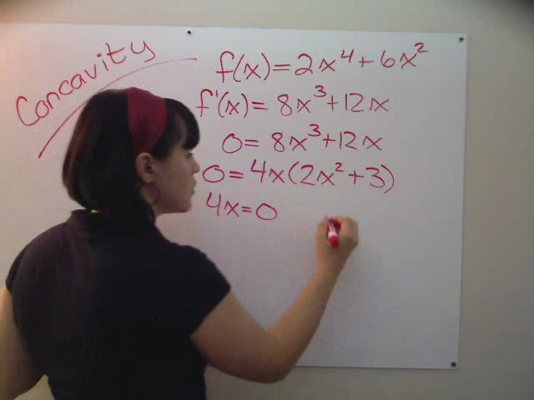 Concavity
f(x)=2x⁴+6x²
f'(x)=8x³+12x
0=8x³+12x
0=4x(2x²+3)
4x=0